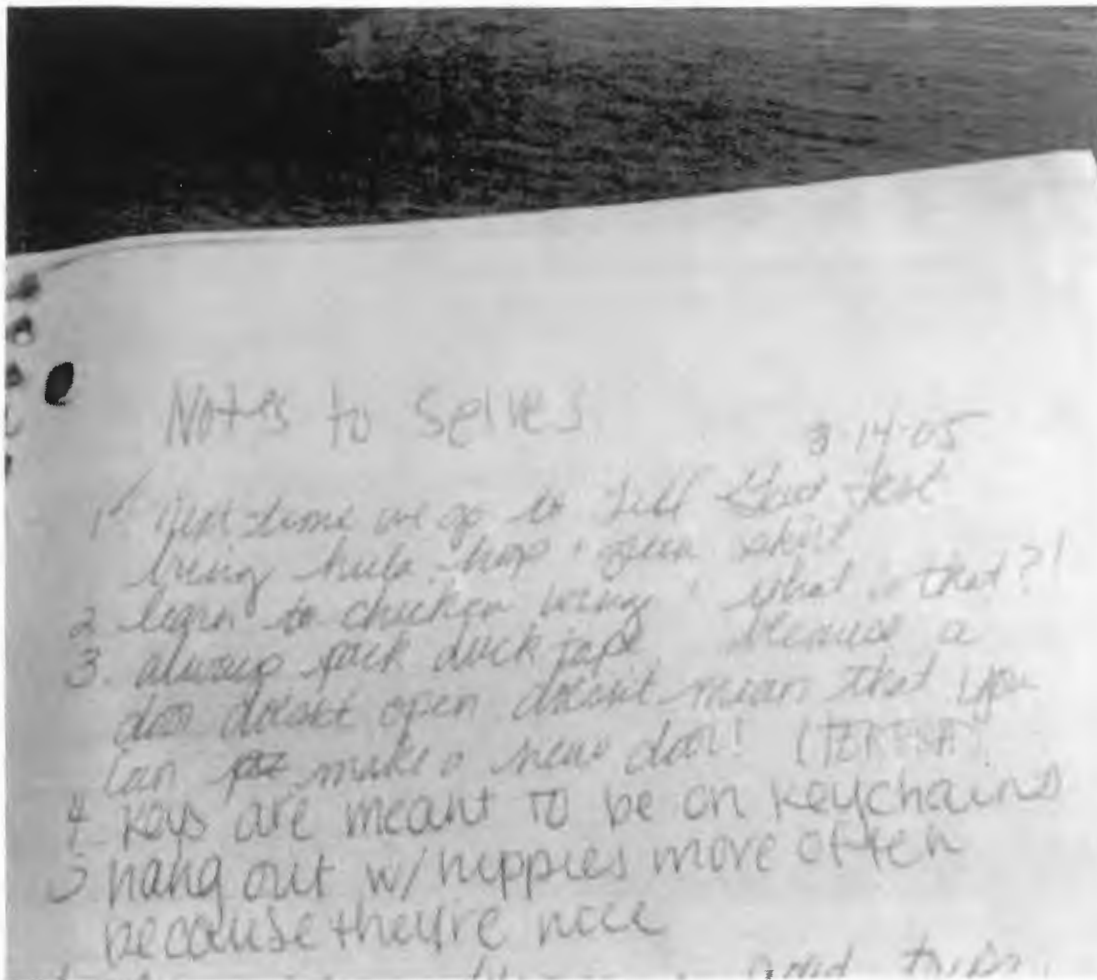 Notes to Selves
3-14-05
1 next time we go to
bring hula hoop + green skirt
2 learn to chicken wing what is that?!
3. always pack duck tape because a
door doesn't open doesn't mean that you
can make a new door!
4. Keys are meant to be on keychains
5 hang out w/ hippies more often
because they're nice